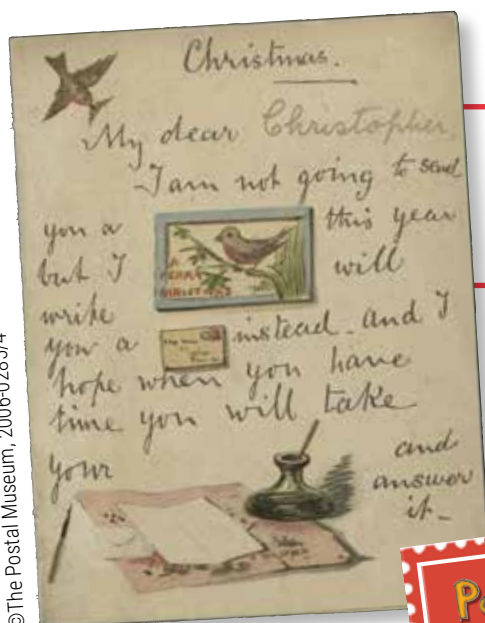 Christmas.
My dear Christopher,
I am not going to send
you a this year
but I will
A
MERRY
CHRISTMAS
write
you a instead - and I
hope when you have
time you will take
your and
answer
it -
©The Postal Museum, 2006-0283/4
P